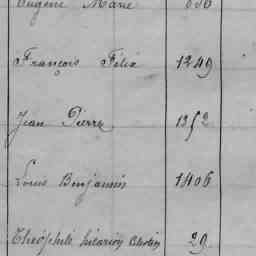 Eugène Marie
François Félix 1249
Jean Pierre 1352
Louis Benjamin 1406
Théophile hilarion 29